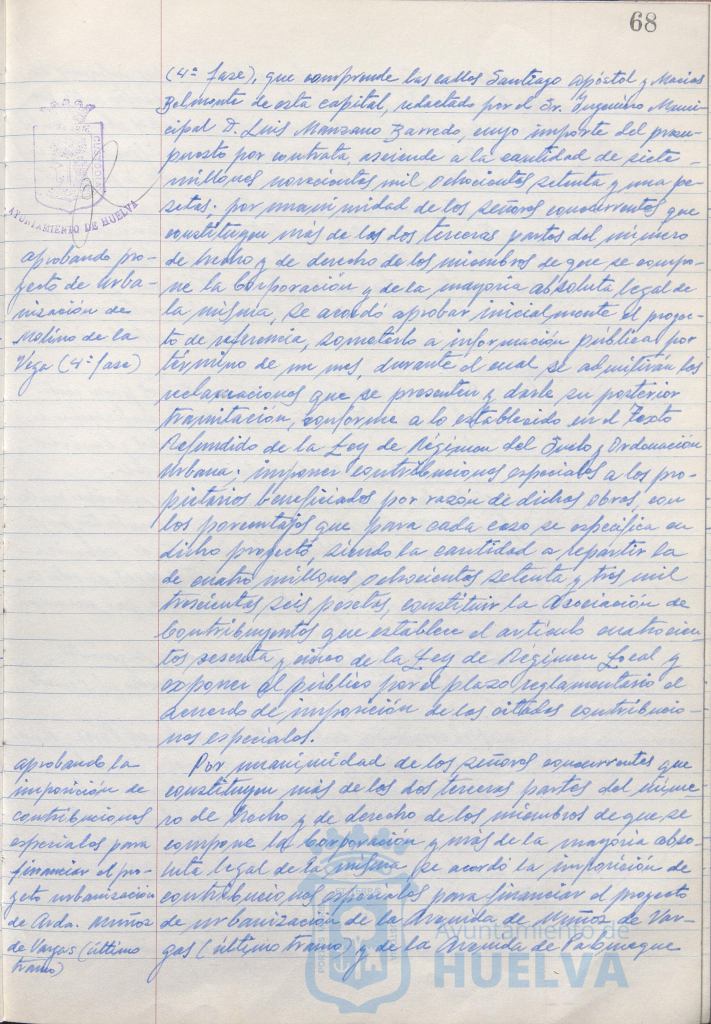 68
(4ª fase), que comprende las calles Santiago Apóstol y Macias
Belmonte de esta capital, redactado por el Sr. Ingeniero Muni-
cipal D. Luis Manzano Barredo, cuyo importe del presu-
puesto por contrata, asciende a la cantidad de siete
millones novecientas mil ochocientas setenta y una pe-
setas. Por unanimidad de los señores concurrentes que
constituyen más de las dos terceras partes del número
de hecho y de derecho de los miembros de que se compo-
ne la Corporación y de la mayoria absoluta legal de
la misma, se acordó aprobar inicialmente el proyec-
to de referencia, someterlo a información pública por
término de un mes, durante el cual se admitirán las
reclamaciones que se presenten y darle su posterior
tramitación, conforme a lo establecido en el Texto
Refundido de la Ley de Régimen del Suelo y Ordenación
Urbana; imponer contribuciones especiales a los pro-
pietarios beneficiados por razón de dichas obras, con
los porcentajes que para cada caso se especifica en
dicho proyecto, siendo la cantidad a repartir la
de cuatro millones ochocientas setenta y tres mil
trescientas seis pesetas, constituir la Asociación de
Contribuyentes que establece el artículo cuatrocien-
tos sesenta y cinco de la Ley de Régimen Local y
exponer al público por el plazo reglamentario el
acuerdo de imposición de las citadas contribucio-
nes especiales.
Por unanimidad de los señores concurrentes que
constituyen más de las dos terceras partes del núme-
ro de hecho y de derecho de los miembros de que se
compone la Corporación y más de la mayoria abso-
luta legal de la misma, se acordó la imposición de
contribuciones especiales para financiar el proyecto
de urbanización de la Avenida de Muñoz de Var-
gas (último tramo) y de la Avenida de Palomeque
AYUNTAMIENTO DE HUELVA
aprobando pro-
yecto de urba-
nización de
Molino de la
Vega (4ª fase)
aprobando la
imposición de
contribuciones
especiales para
financiar el pro-
yecto urbanización
de Avda. Muñoz
de Vargas (último
tramo)
Ayuntamiento de
HUELVA